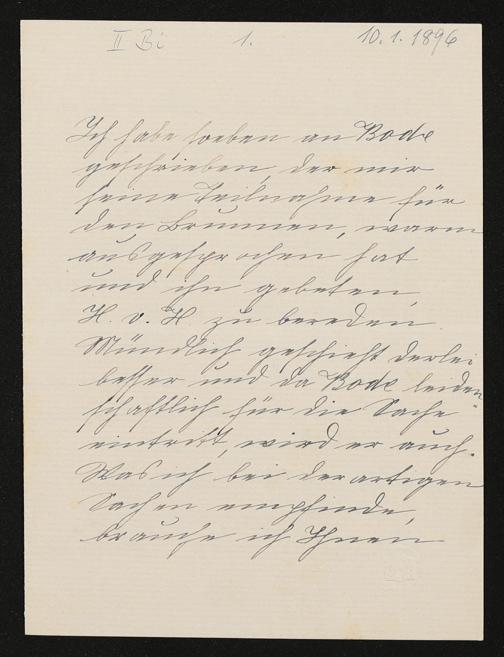 II Bi 1. 10.1.1896
Ich habe soeben an Bode
geschrieben, der mir
seine Teilnahme für
den Brunnen, warm
ausgesprochen hat
und ihn gebeten,
H. v. H zu bereden.
Mündlich geschieht derlei
besser und da Bode leiden-
schaftlich für die Sache
eintritt, wird er auch.
Was ich bei derartigen
Sachen empfinde,
brauche ich Ihnen